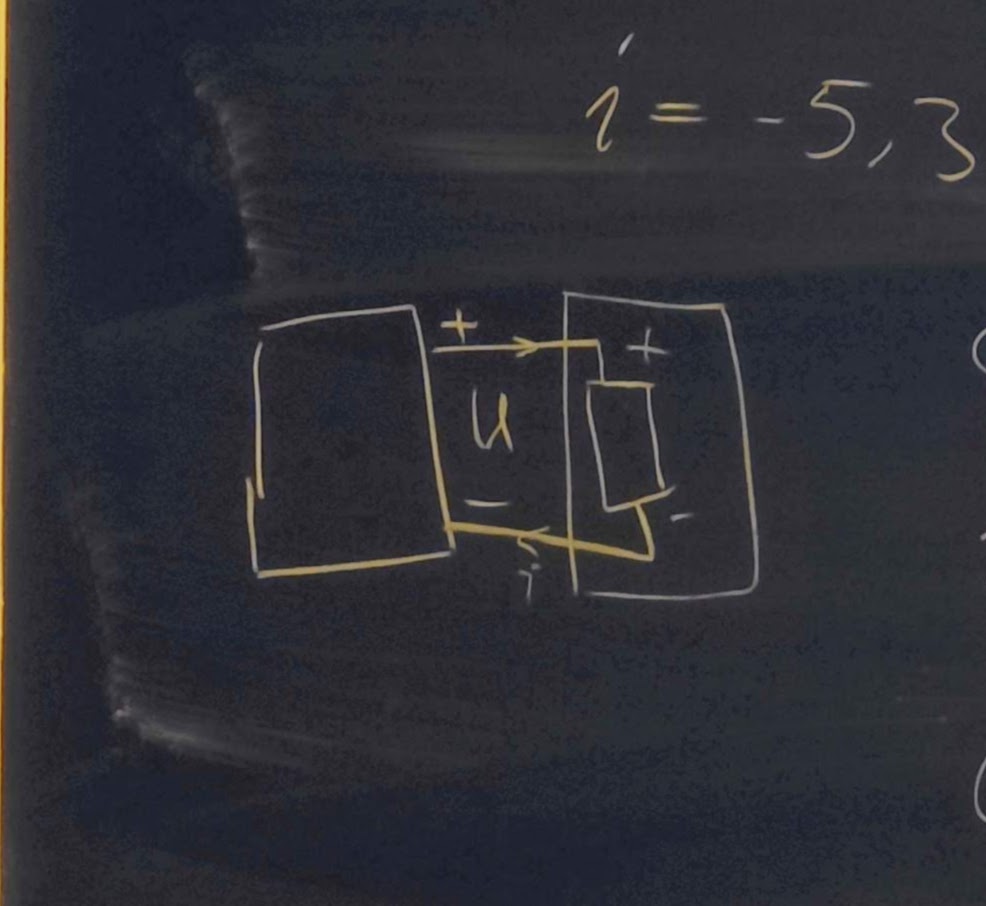 i = -5,3
+ +
u
- -
i